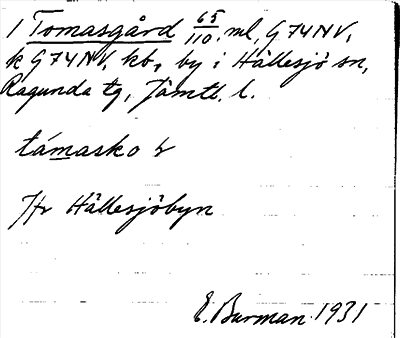 1 Tomasgård 65/110 ml, G 74 NV,
k G 74 NV, kb, by i Hällesjö sn,
Ragunda tg, Jämtl. l.
támasko
Jfr Hällesjöbyn
E. Burman 1931